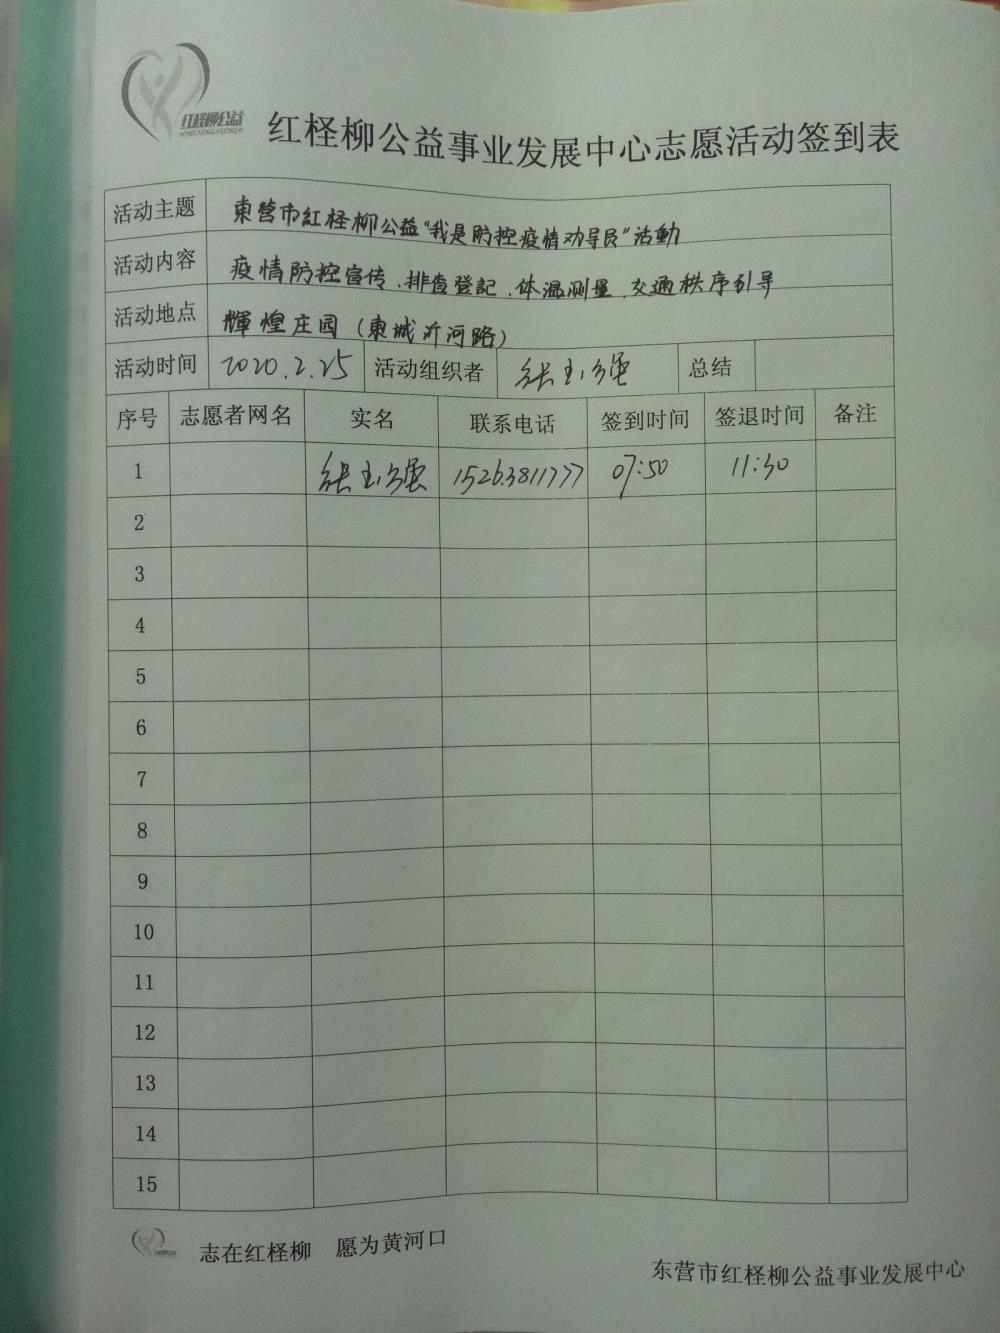 红柽柳公益
HONGCHENGLIUGONGYI
红柽柳公益事业发展中心志愿活动签到表
活动主题 東营市紅柽柳公益“我是防控疫情劝导员”活動
活动内容 疫情防控宣传、排查登記、体温测量、交通秩序引导
活动地点 輝煌庄园（東城沂河路）
活动时间 2020.2.25 活动组织者 张玉强 总结
序号 志愿者网名 实名 联系电话 签到时间 签退时间 备注
1 张玉强 15263811777 07:50 11:30
2
3
4
5
6
7
8
9
10
11
12
13
14
15
志在红柽柳 愿为黄河口
东营市红柽柳公益事业发展中心